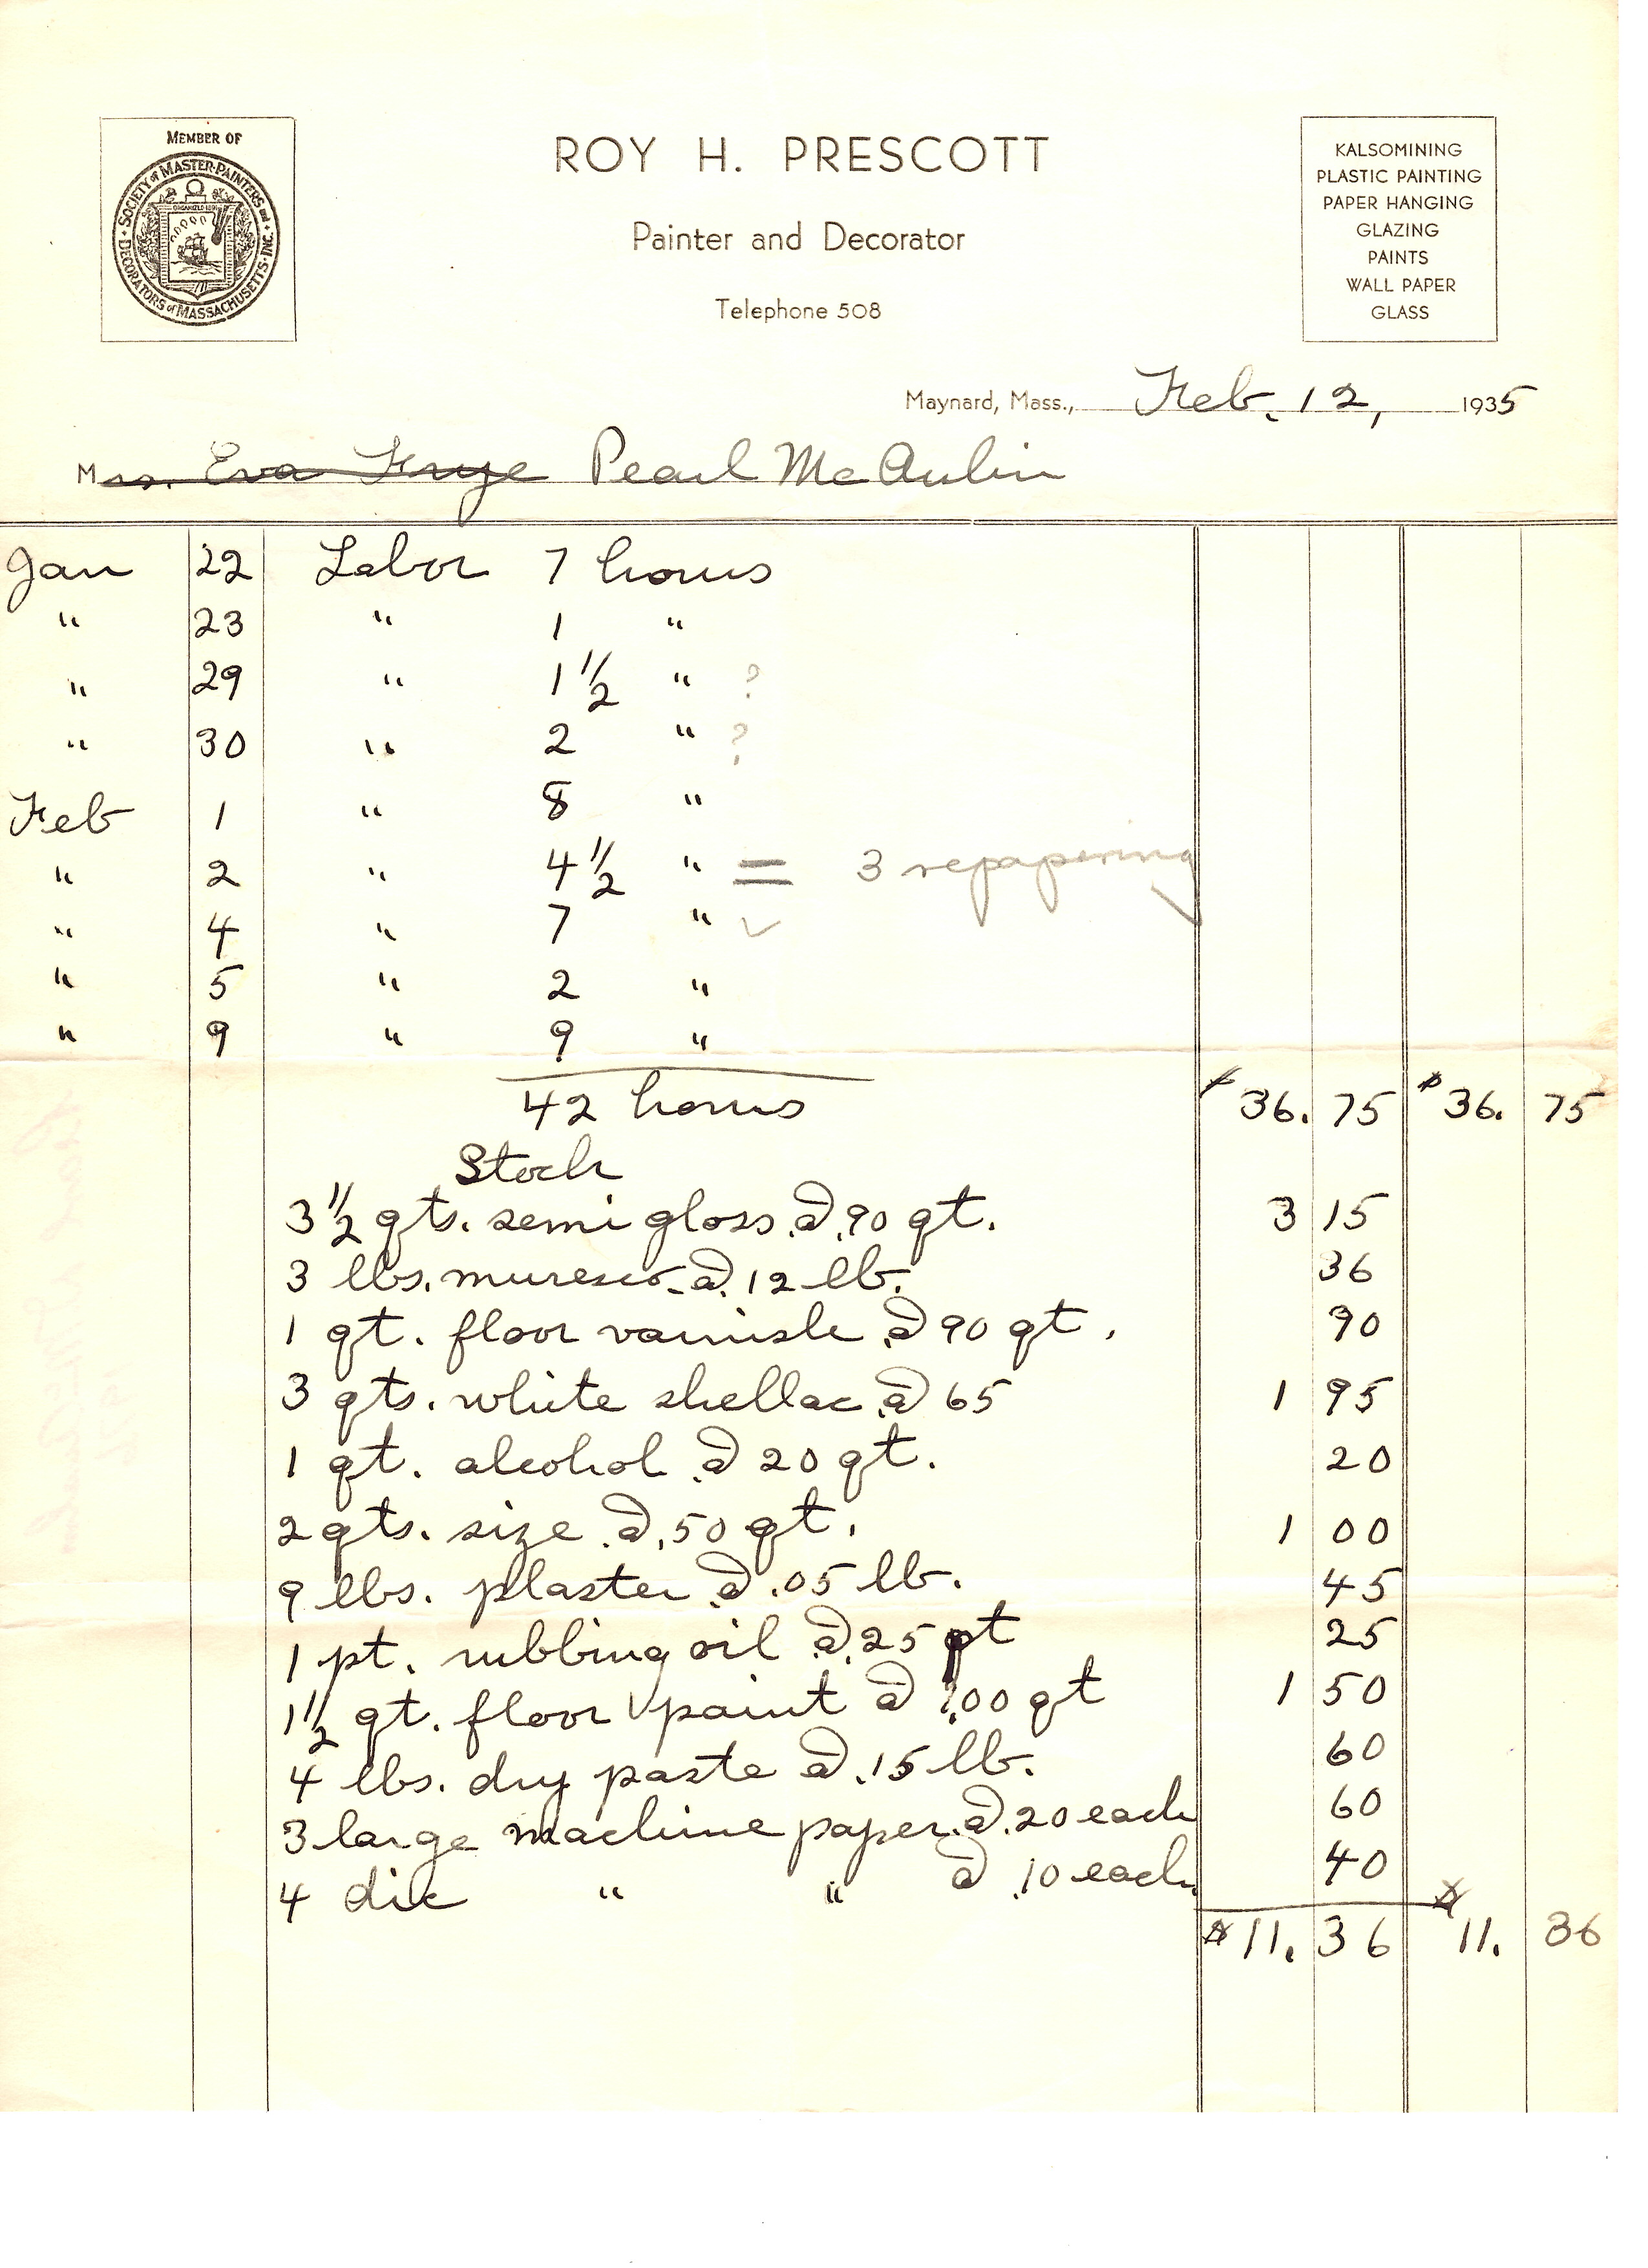 MEMBER OF
SOCIETY of MASTER PAINTERS and DECORATORS of MASSACHUSETTS INC.
ROY H. PRESCOTT
Painter and Decorator
Telephone 508
KALSOMINING
PLASTIC PAINTING
PAPER HANGING
GLAZING
PAINTS
WALL PAPER
GLASS
Maynard, Mass., Feb. 12, 1935
Mrs. Eva Frye Pearl McAulin
Jan 22 Labor 7 hours
" 23 " 1 "
" 29 " 1 1/2 " ?
" 30 " 2 " ?
Feb 1 " 8 "
" 2 " 4 1/2 " = 3 repapering
" 4 " 7 " ✓
" 5 " 2 "
" 9 " 9 "
42 hours $36.75 $36.75
Stock
3 1/2 qts. semi gloss @ .90 qt. 3 15
3 lbs. muresco @ .12 lb. 36
1 qt. floor varnish @ 90 qt. 90
3 qts. white shellac @ 65 1 95
1 qt. alcohol @ 20 qt. 20
2 qts. size @ .50 qt. 1 00
9 lbs. plaster @ .05 lb. 45
1 pt. rubbing oil @ .25 pt 25
1 1/2 qt. floor paint @ 1.00 qt 1 50
4 lbs. dry paste @ .15 lb. 60
3 large machine paper @ .20 each 60
4 die " " @ .10 each 40
$11.36 $11.36